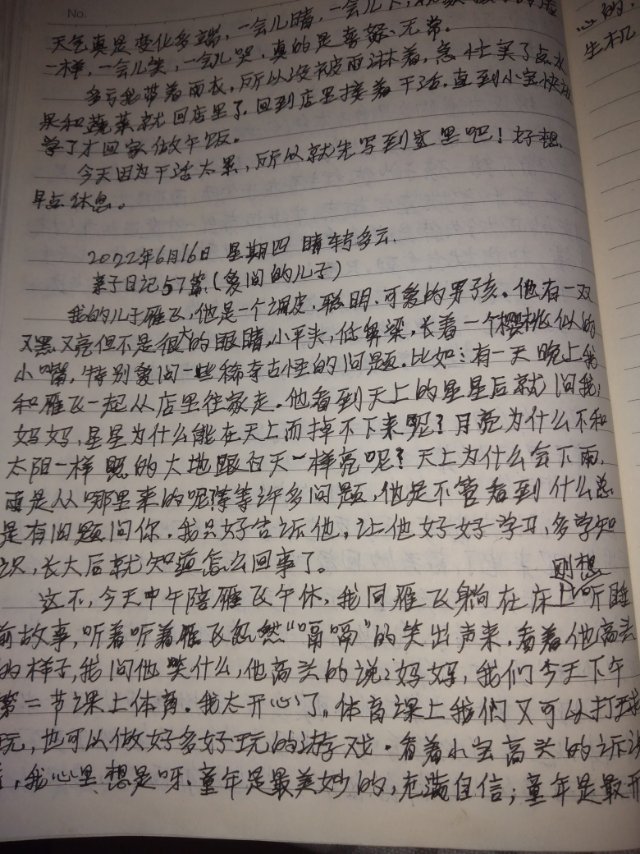 No.
天气真是变化多端,一会儿晴,一会儿下,
一样,一会儿笑,一会儿哭,真的是喜怒无常。
多亏我带着雨衣,所以没被雨淋着,急忙买了点水
果和蔬菜就回店里了,回到店里接着干活,直到小宝快放
学了才回家做午饭。
今天因为干活太累,所以就先写到这里吧!好想
早点休息。
2022年6月16日 星期四 晴转多云.
亲子日记57篇.(爱问的儿子)
我的儿子雁飞,他是一个调皮,聪明,可爱的男孩。他有一双
又黑又亮但不是很大的眼睛,小平头,低鼻梁,长着一个樱桃似的
小嘴,特别爱问一些稀奇古怪的问题。比如:有一天晚上我
和雁飞一起从店里往家走。他看到天上的星星后就问我:
妈妈,星星为什么能在天上而掉不下来呢?月亮为什么不和
太阳一样照的大地跟白天一样亮呢?天上为什么会下雨,
雨是从哪里来的呢等等许多问题,他是不管看到什么总
是有问题问你,我只好告诉他,让他好好学习,多学知
识,长大后就知道怎么回事了。
这不,今天中午陪雁飞午休,我同雁飞躺在床上刚想听睡
前故事,听着听着雁飞忽然“嗝嗝”的笑出声来,看着他高兴
的样子,我问他笑什么,他高兴的说:妈妈,我们今天下午
第二节课上体育。我太开心了。体育课上我们又可以打球
玩,也可以做好多好玩的游戏。看着小宝高兴的诉说
着,我心里想是呀,童年是最美妙的,充满自信;童年是最开
心的,
生机